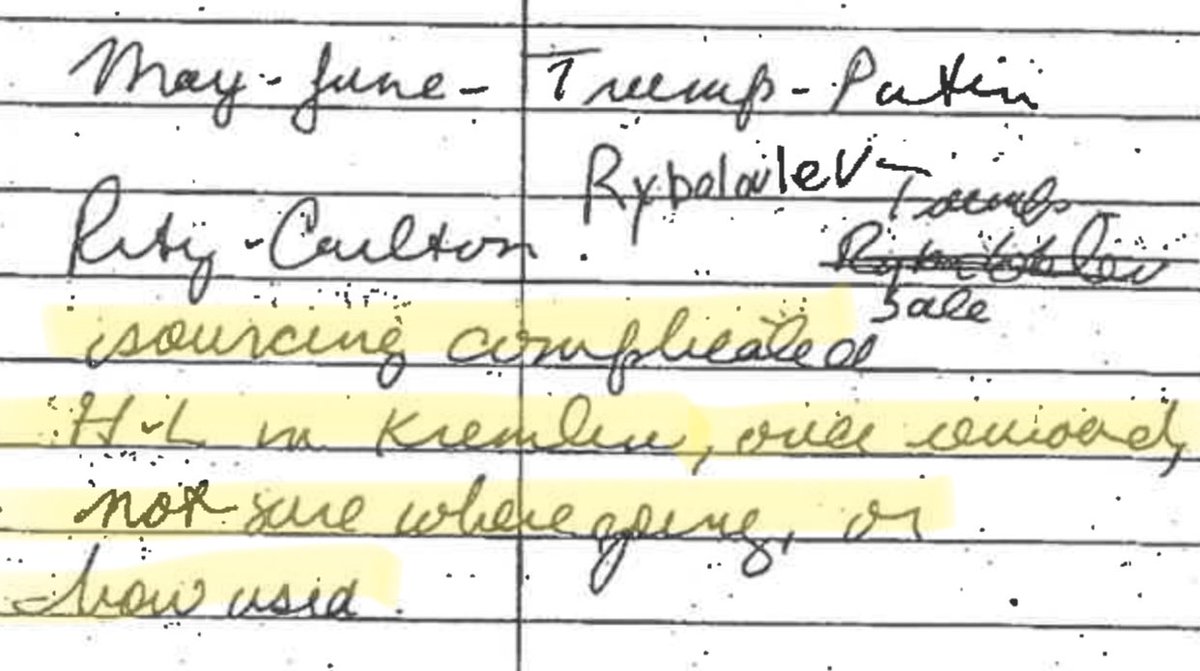 May - June - Trump - Putin
Rybolovlev - Trump
Ritz-Carlton
Sale
sourcing complicated
H-L in Kremlin, once removed,
not sure where going, or
how used.